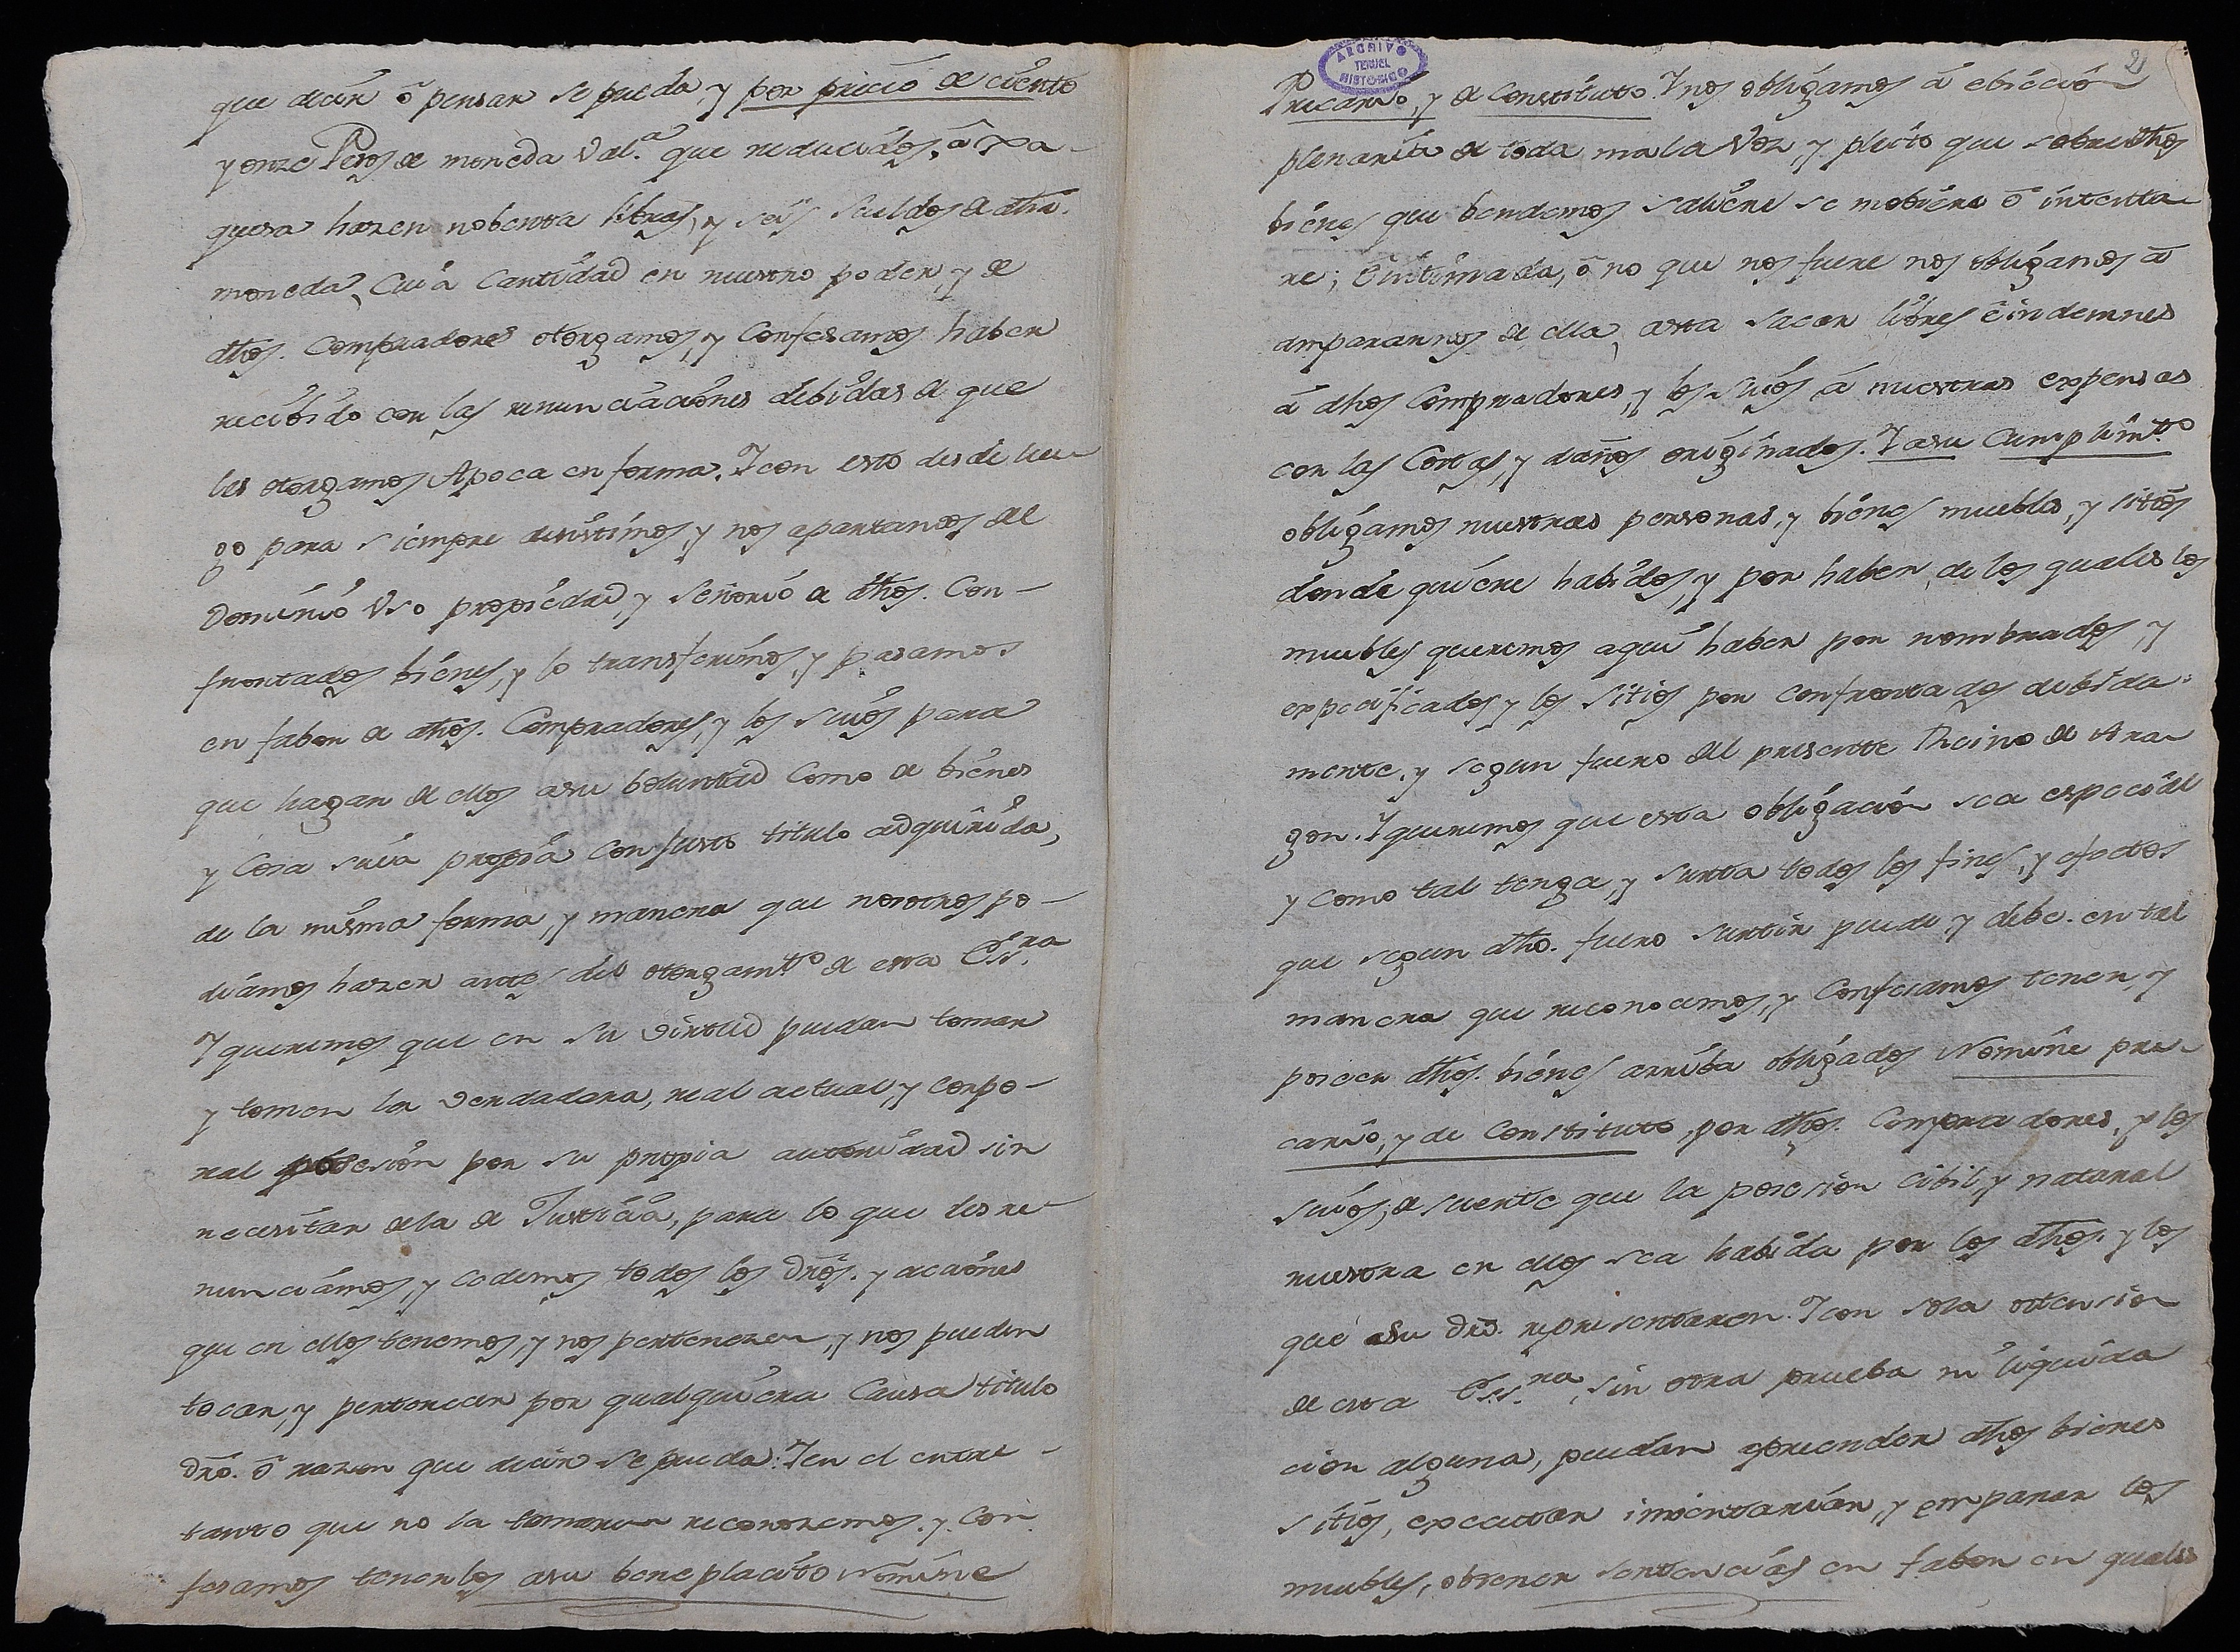 que decir ô pensar se pueda, y por precio de ciento
y onze Pesos de moneda Val.ª que reducidos, â Xa-
quesa hazen nobenta libras, y seis sueldos de dha.
moneda, Cuia Cantidad en nuestro poder, y de
dhos. Compradores otorgamos, y Confesamos haber
recibido con las renunciaciones debidas de que
les otorgamos Apoca en forma. Y con esto desde lue-
go para siempre desistimos, y nos apartamos del
Dominio Uso propiedad, y Señorio de dhos. Con-
frontados bienes, y lo transferimos, y pasamos
en fabor de dhos. Compradores, y los suios para
que hagan de ellos asu boluntad Como de bienes
y Cosa suia propia Con Justo titulo adquirida,
de la misma forma, y manera que nosotros po-
diamos hazer antes del otorgamto de esta Essra
Y queremos que en su virtud puedan tomar
y tomen la verdadera, real actual, y corpo-
ral posesion por su propia autoridad sin
necesitar dela de Justicia, para lo que les re-
nunciamos, y Cedemos todos los Dros. y acciones
que en ellos tenemos, y nos pertenezen, y nos pueden
tocar, y pertenecer por qualquiera Causa titulo
Dro. ô razon que decir se pueda. Y en el entre-
tanto que no la tomaren reconozemos, y Con
fesamos tenerlos asu beneplacito nomine
ARCHIVO
HISTORICO
TERUEL
2
Precario, y de Constituto. Y nos obligamos â ebiccion
plenaria de toda mala Voz, y pleito que sobre dhos
bienes que bendemos saliere se mobiere ô intenta
re; Êintimada, ô no que nos fuere nos obligamos â
ampararnos de ella, asta sacar libres êindemnes
â dhos Compradores, y los suios â nuestras expensas
con las Costas, y daños originados. Y asu Cumplimto
obligamos nuestras personas, y bienes muebles, y sitios
donde quiere habidos, y por haber, de los quales los
muebles queremos aqui haber por nombrados, y
expecificados y los sitios por confrontados debida-
mente, y segun fuero del presente Reino de Ara-
gon. Y queremos que esta obligacion sea especial
y como tal tenga, y surta todos los fines, y efectos
que segun dho. fuero surtir puede y debe. en tal
manera que reconocemos, y Confesamos tener, y
poseer dhos. bienes arriba obligados Nomine pre-
cario, y de Constituto, por dhos. Compradores, y los
suios; de suerte que la posesion cibil, y natural
nuestra en ellos sea habida por los dhos. y los
que asu Dro. representaren. Y con sola ostension
de esta Essra, sin otra prueba ni liquida
cion alguna, puedan aprender dhos bienes
sitios, execcutar inbentariar, y emparar los
muebles, obtener sentencias en fabor en quales